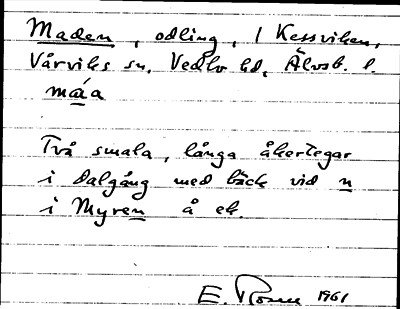 Maden, odling, 1 Kessviken,
Vårviks sn, Vedbo hd, Älvsb. l.
máa
Två smala, långa åkertegar
i dalgång med bäck vid n
i Myren å ek.
E. Rosen 1961